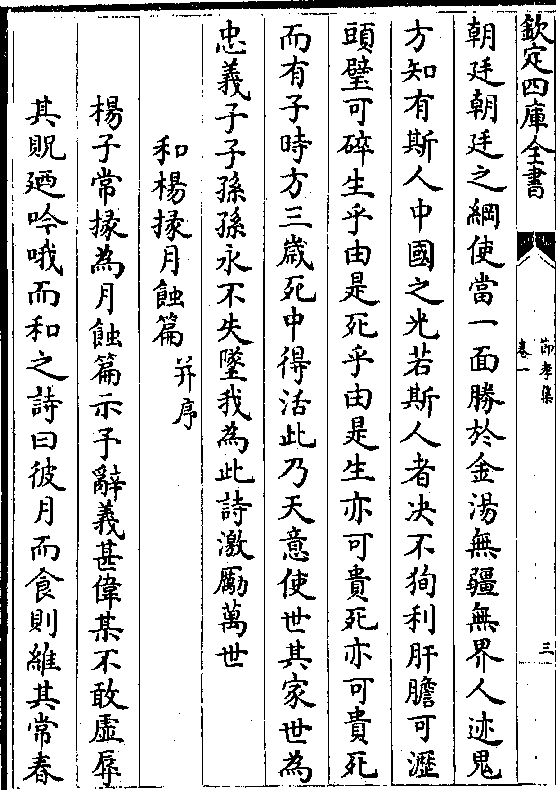 欽定四庫全書
節孝集
卷一
三
朝廷朝廷之綱使當一面勝於金湯無疆無界人迹鬼
方知有斯人中國之光若斯人者决不狥利肝膽可瀝
頭壁可碎生乎由是死乎由是生亦可貴死亦可貴死
而有子時方三歲死中得活此乃天意使世其家世為
忠義子子孫孫永不失墜我為此詩激勵萬世
和楊掾月蝕篇 并序
楊子常掾為月蝕篇示予辭義甚偉某不敢虛辱
其貺廼吟哦而和之詩曰彼月而食則維其常春